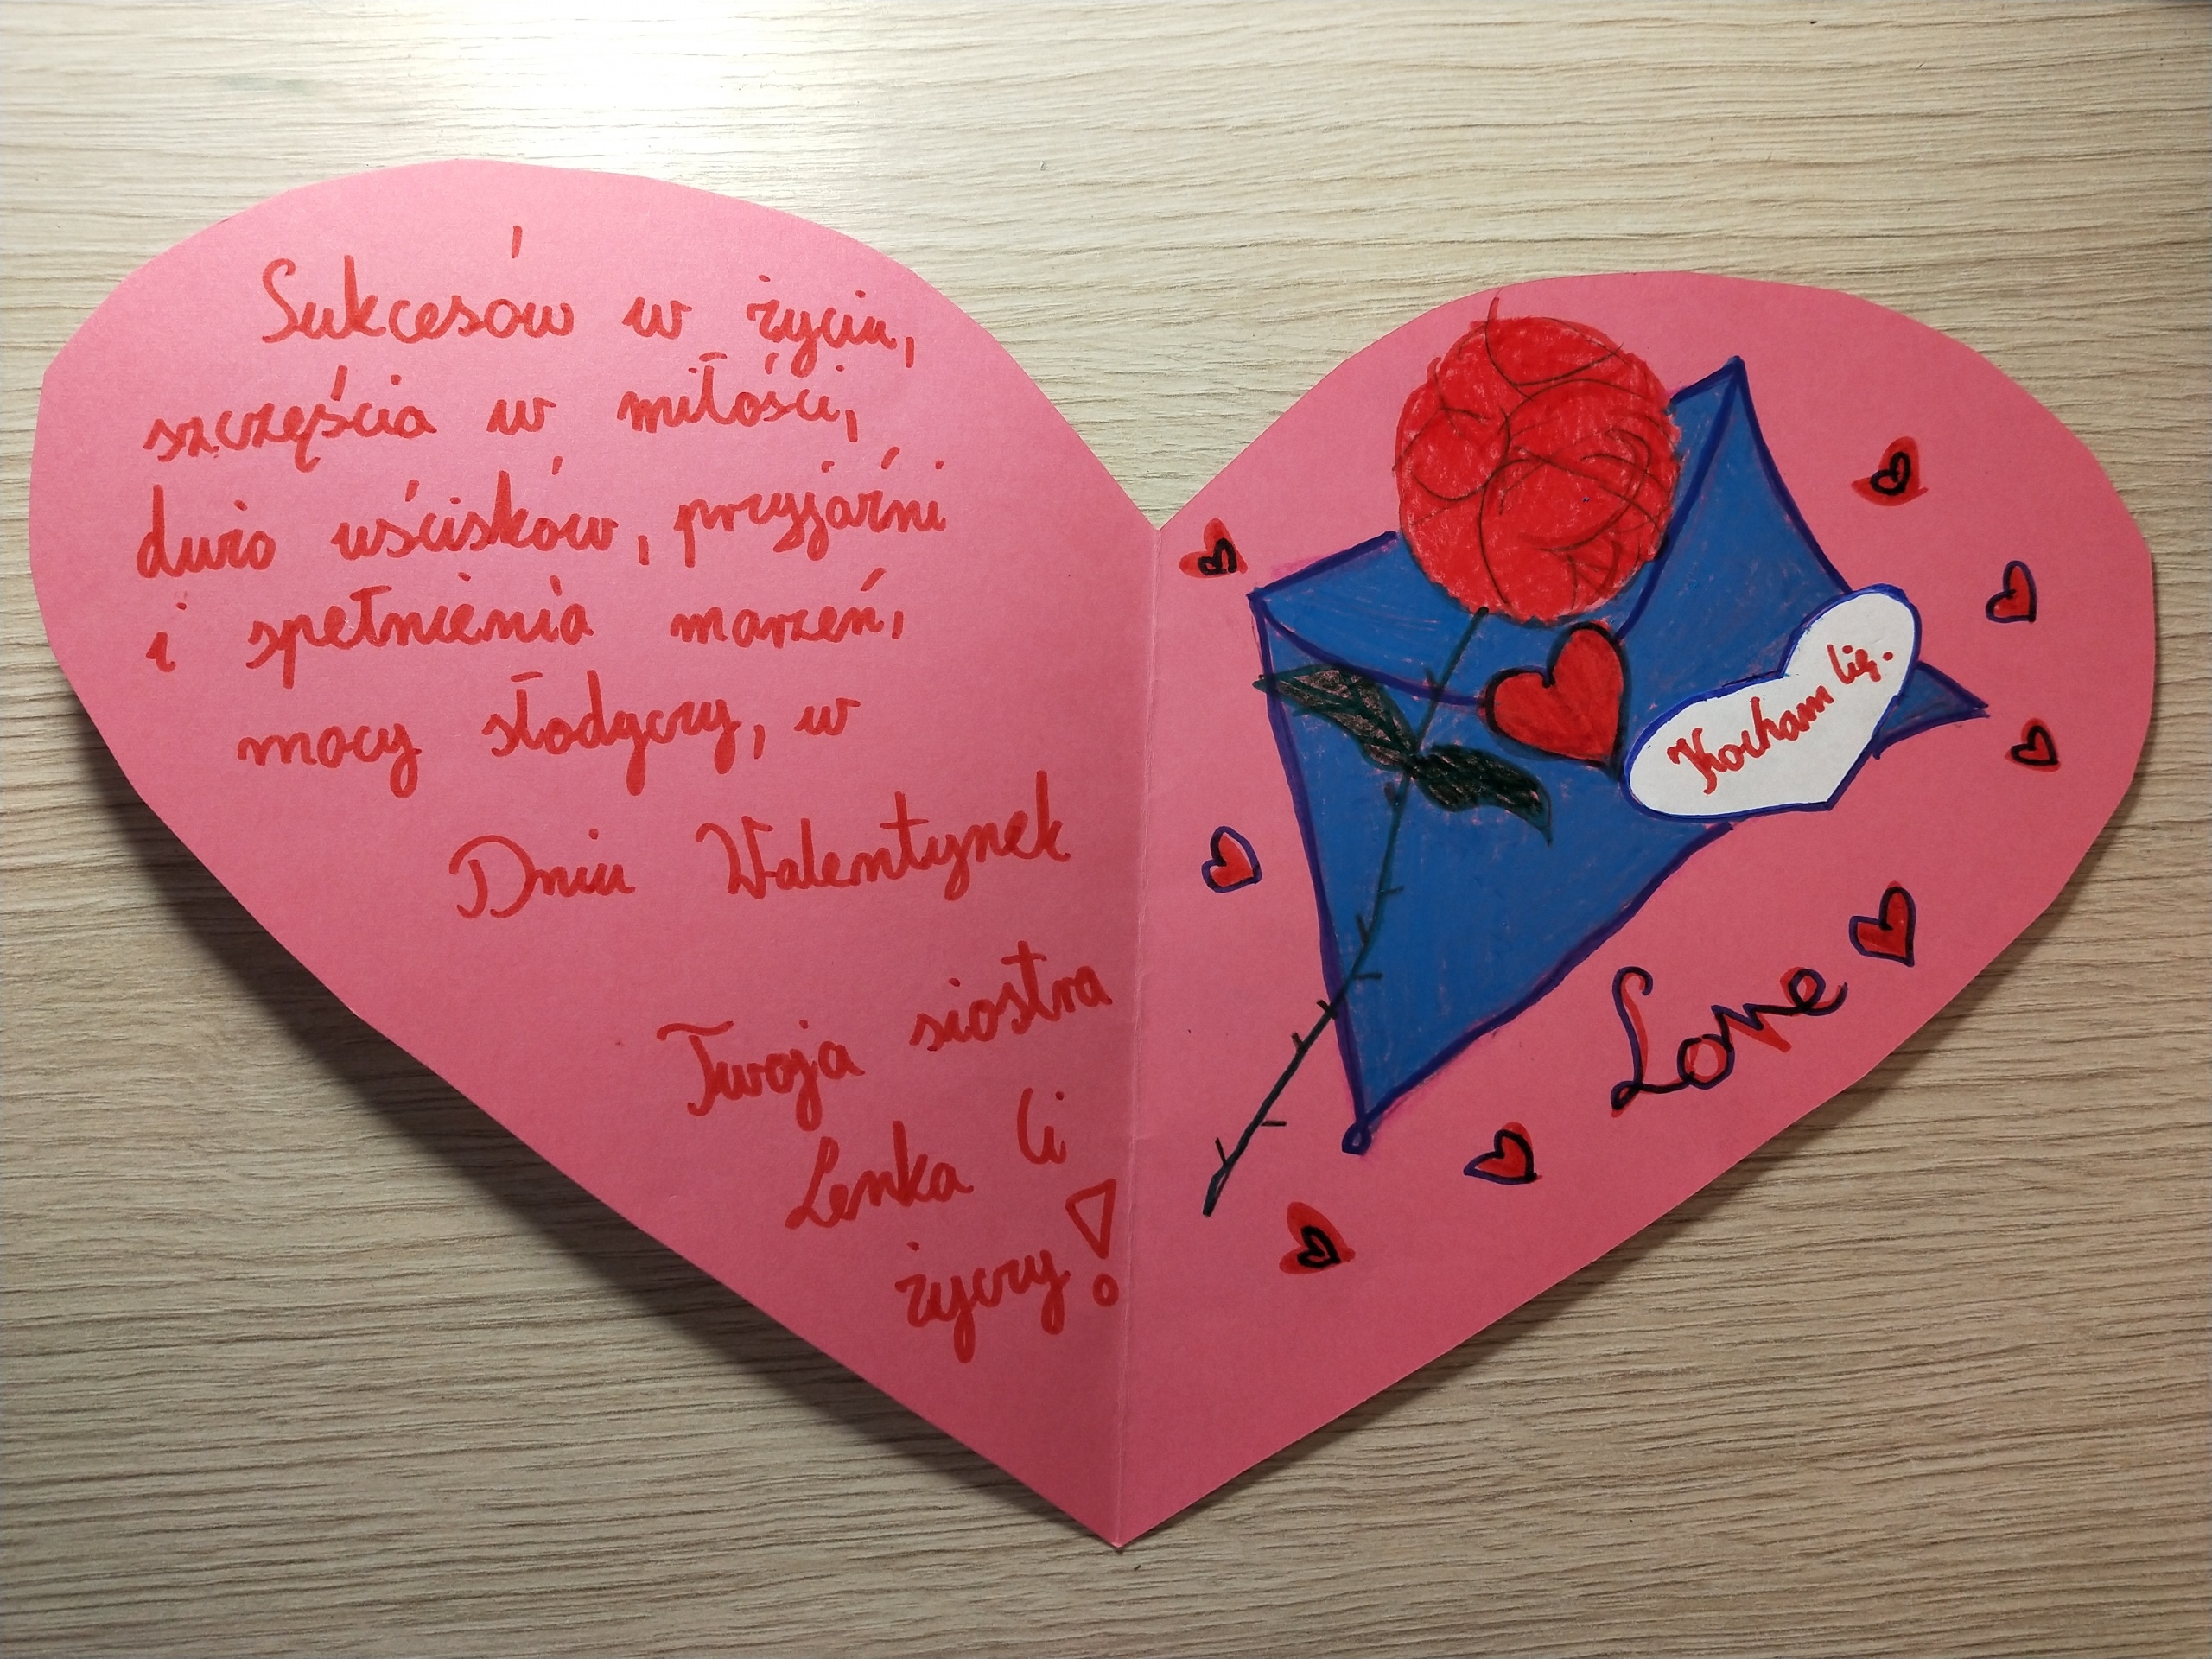 Sukcesów w życiu,
szczęścia w miłości,
dużo uścisków, przyjaźni
i spełnienia marzeń,
mocy słodyczy, w
Dniu Walentynek
Twoja siostra
Lenka Ci
życzy!
Kocham Cię.
Love